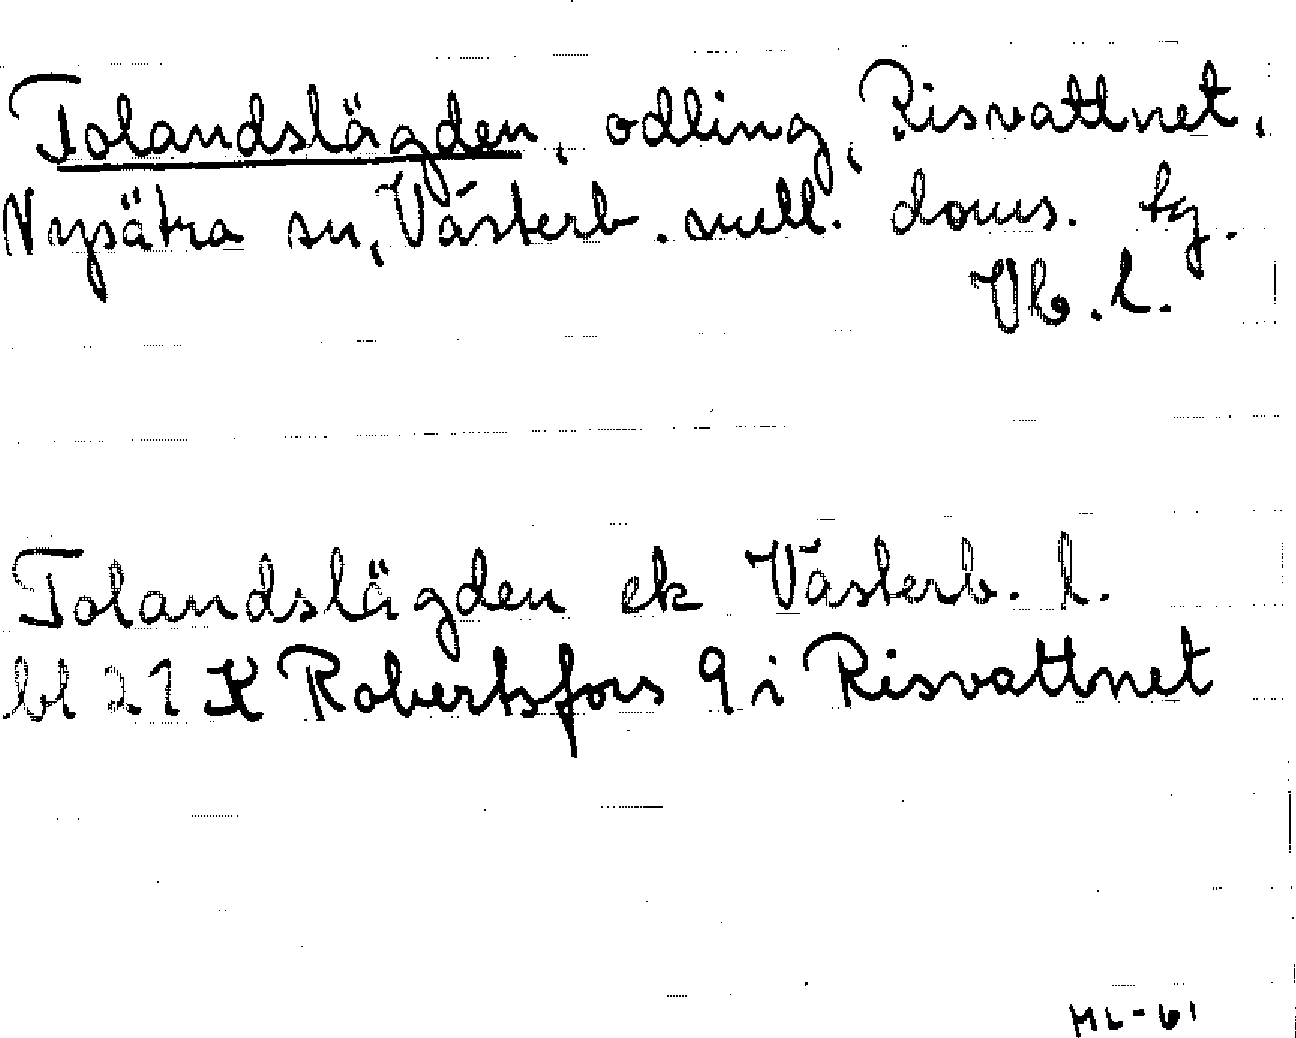 Tolandslägden, odling, Risvattnet,
Nysätra sn, Västerb. mell. doms. tg.
Vb. l.
Tolandslägden ek Västerb. l.
bl 21 K Robertsfors 9 i Risvattnet
ML-61